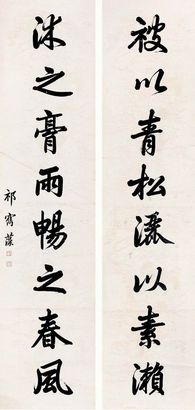 被以青松濯以素瀨
沐之膏雨暢之春風
祁寯藻